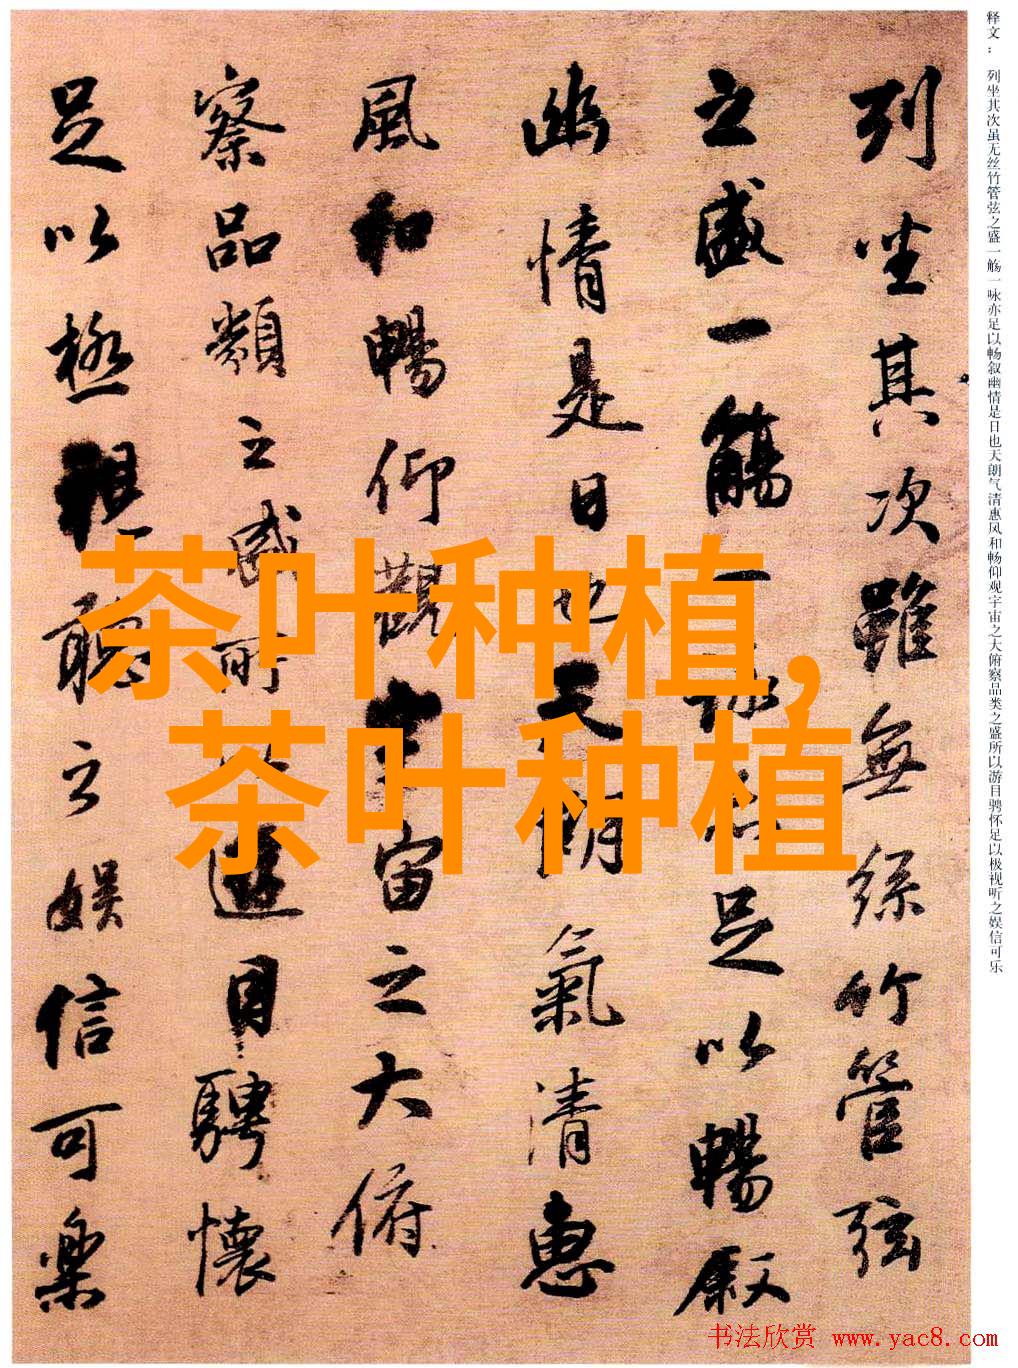 释文：列坐其次虽无丝竹管弦之盛一觞一咏亦足以畅叙幽情是日也天朗气清惠风和畅仰观宇宙之大俯察品类之盛所以游目骋怀足以极视听之娱信可乐
列坐其次雖無絲竹管弦
之盛一觴一詠亦足以暢叙
幽情是日也天朗氣清惠
風和暢仰觀宇宙之大俯
察品類之盛所以遊目騁懷
足以極視聽之娱信可樂
茶叶种植,
茶叶种植
书法欣赏 www.yac8.com